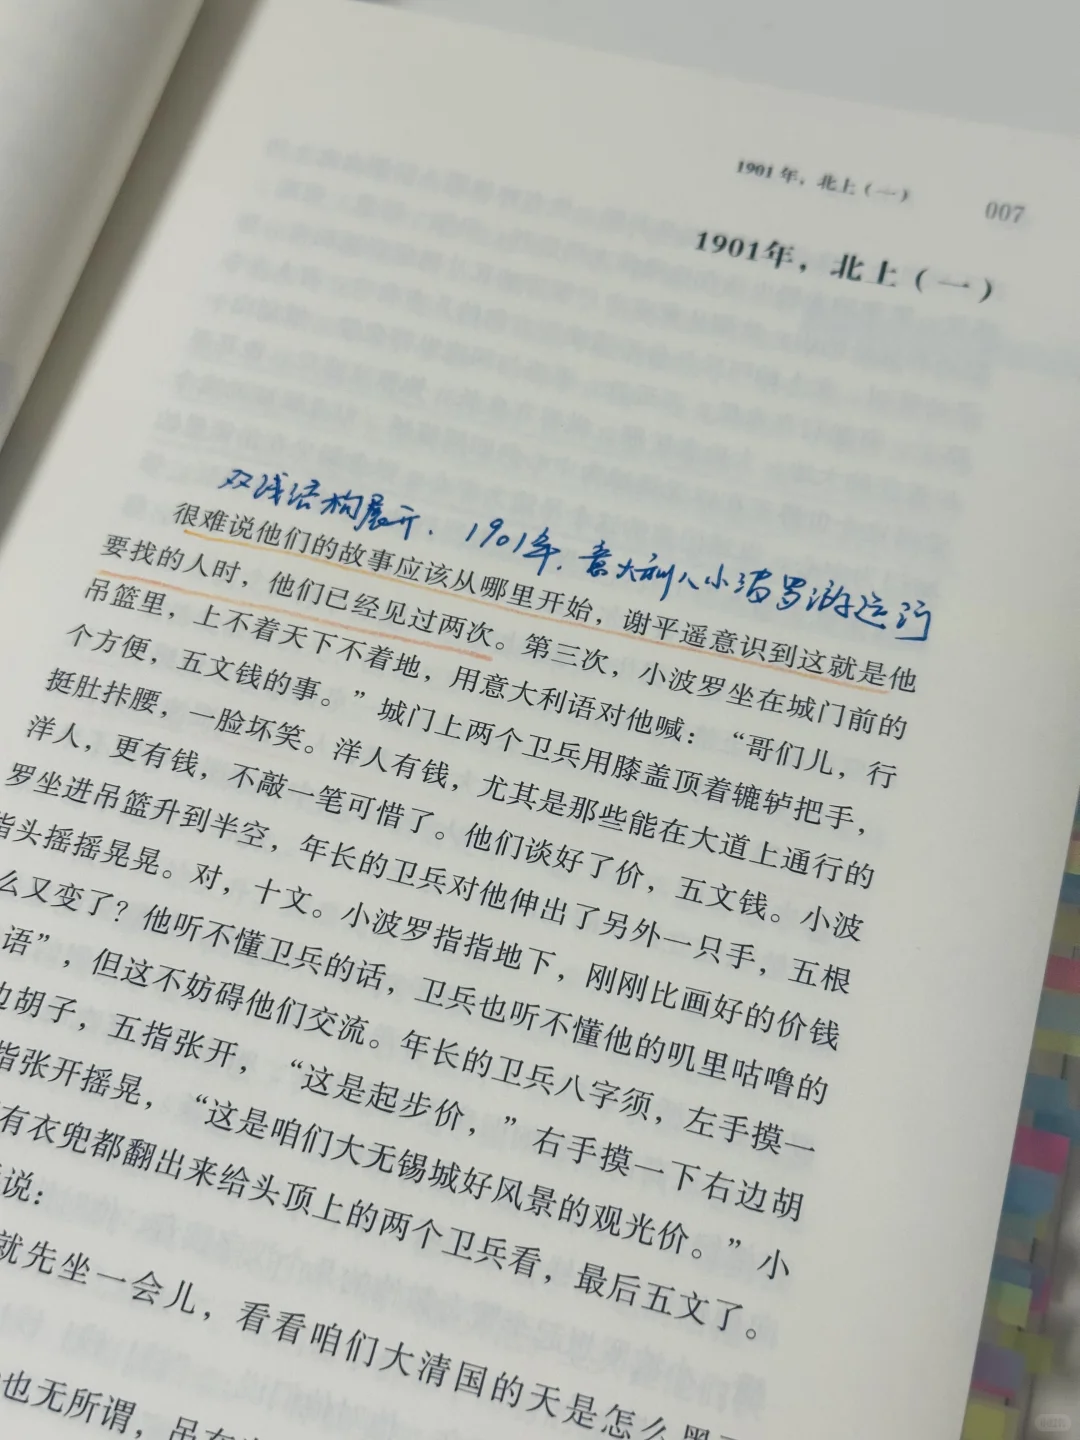 1901年，北上（一）
007
1901年，北上（一）
双线结构展开．1901年．意大利人小波罗游运河
很难说他们的故事应该从哪里开始，谢平遥意识到这就是他
要找的人时，他们已经见过两次。第三次，小波罗坐在城门前的
吊篮里，上不着天下不着地，用意大利语对他喊：“哥们儿，行
个方便，五文钱的事。”城门上两个卫兵用膝盖顶着辘轳把手，
挺肚拤腰，一脸坏笑。洋人有钱，尤其是那些能在大道上通行的
洋人，更有钱，不敲一笔可惜了。他们谈好了价，五文钱。小波
罗坐进吊篮升到半空，年长的卫兵对他伸出了另外一只手，五根
指头摇摇晃晃。对，十文。小波罗指指地下，刚刚比画好的价钱
么又变了？他听不懂卫兵的话，卫兵也听不懂他的叽里咕噜的
语”，但这不妨碍他们交流。年长的卫兵八字须，左手摸一
边胡子，五指张开，“这是起步价，”右手摸一下右边胡
指张开摇晃，“这是咱们大无锡城好风景的观光价。”小
有衣兜都翻出来给头顶上的两个卫兵看，最后五文了。
说：
就先坐一会儿，看看咱们大清国的天是怎么黑
也无所谓，吊在